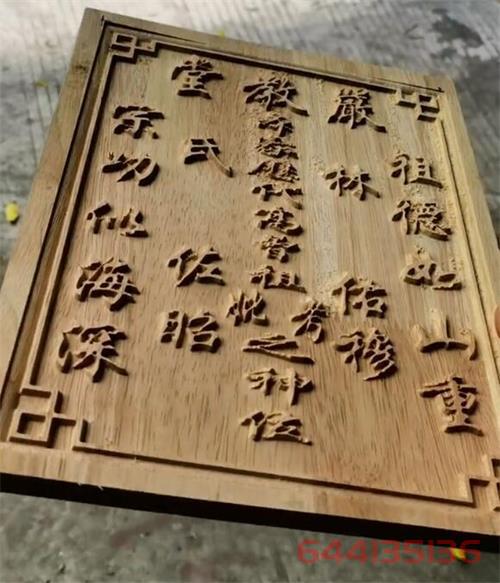 祖德如山重
嚴林佑穆
敬家歷代高曾祖考妣之神位
堂佐昭
宗功似海深
644135136